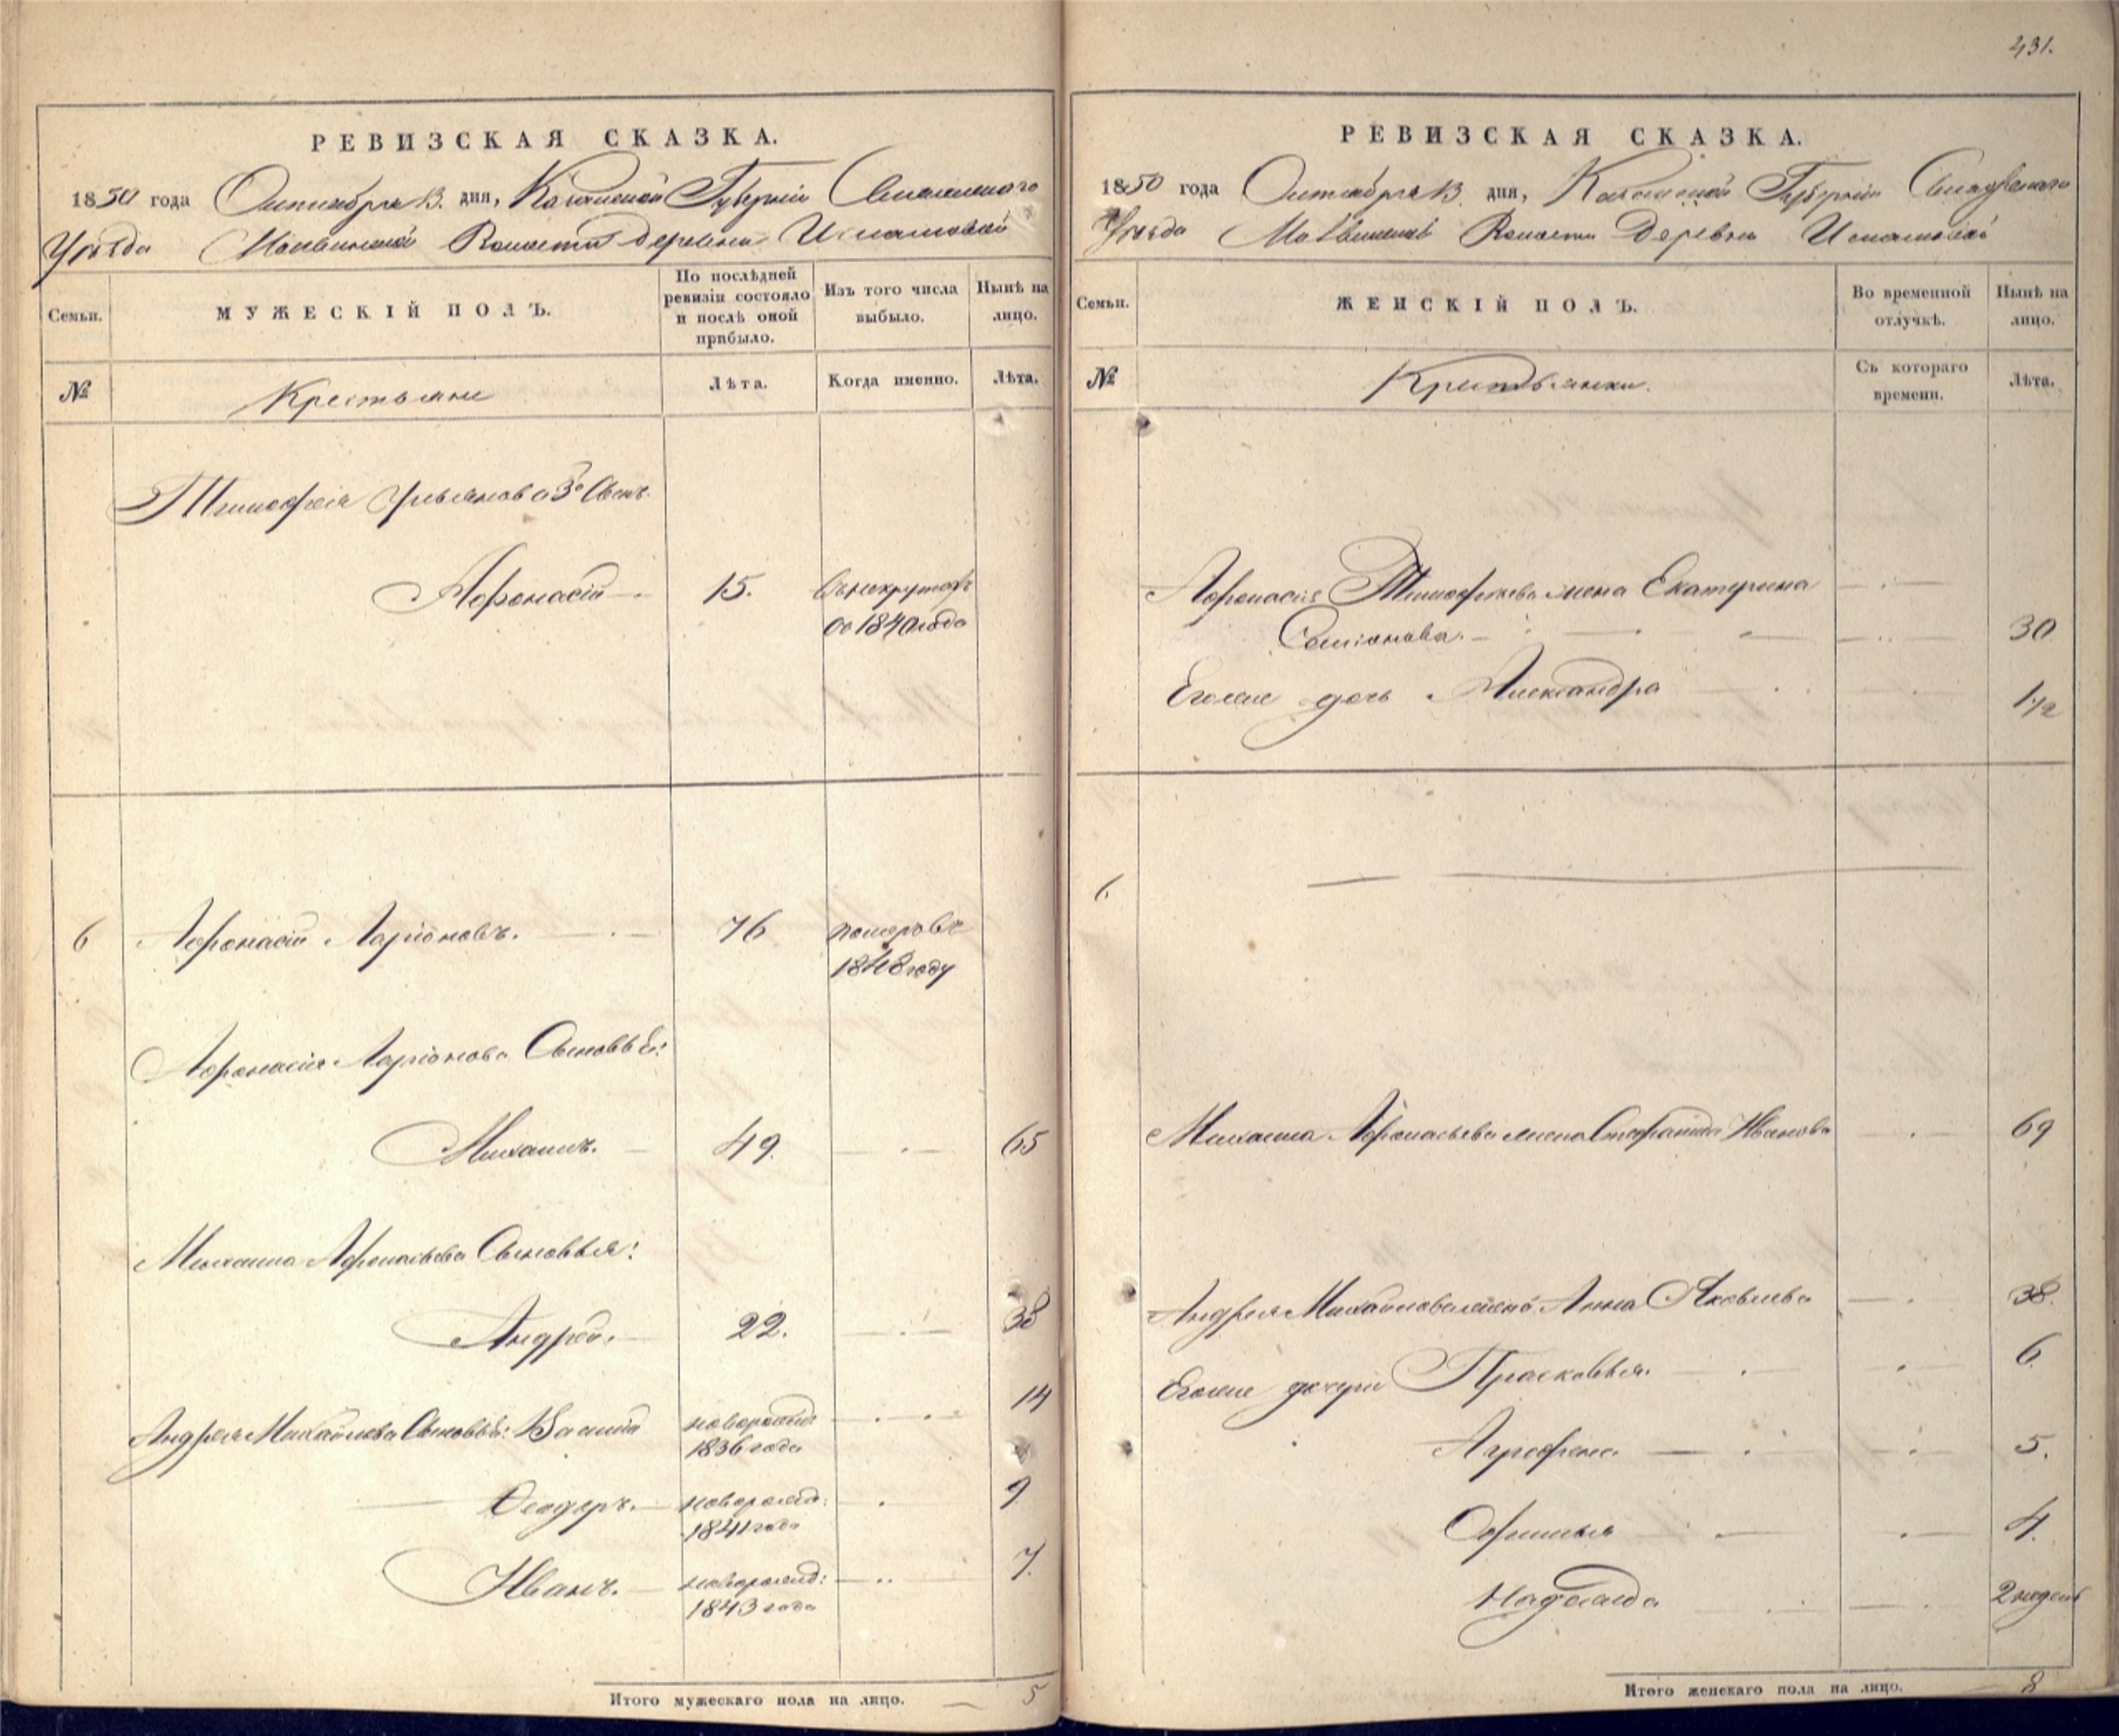 431.
РЕВИЗСКАЯ СКАЗКА.
1850 года Октября 13. дня, Казанской Губернiи Свiяжского
Уѣзда Волости Деревни
Семьи.
МУЖЕСКІЙ ПОЛЪ.
По послѣдней ревизіи состояло и послѣ оной прибыло.
Изъ того числа выбыло.
Нынѣ на лицо.
№
Крестьяне
Лѣта.
Когда именно.
Лѣта.
Тимофея Ульянова 3й Сынъ.
Афонасiй 15. Врекрутахъ
со 1840 года
6 Афонасiй Ларiоновъ. 76 померъ въ
1848 году
Афонасiя Ларiонова Сыновья:
Михаилъ. 49. 65
Михаила Афонасьева Сыновья:
Андрей. 22. 38
Андрея Михайлова Сыновья: новорожд 14
1836 года
Феодоръ. новорожд: 9
1841 года
Иванъ. новорожд: 7.
1843 года
Итого мужескаго пола на лицо. 5
РЕВИЗСКАЯ СКАЗКА.
1850 года Октября 13 дня, Казанской Губернiи Свiяжского
Уѣзда Волости Деревни
Семьи.
ЖЕНСКІЙ ПОЛЪ.
Во временной отлучкѣ.
Нынѣ на лицо.
№
Крестьянки.
Съ котораго времени.
Лѣта.
Афонасiя Тимофеева жена Екатерина
Семiонова. 30
Егоже дочь Александра 1 1/2
6
Михаила Афонасьева жена Стефанида Иванова 69
Андрея Михайлова жена Анна Яковлева 38.
Егоже дочери Прасковья. 6
Аграфена 5.
Офимья 4.
Надежда 2 недель
Итого женскаго пола на лицо. 8